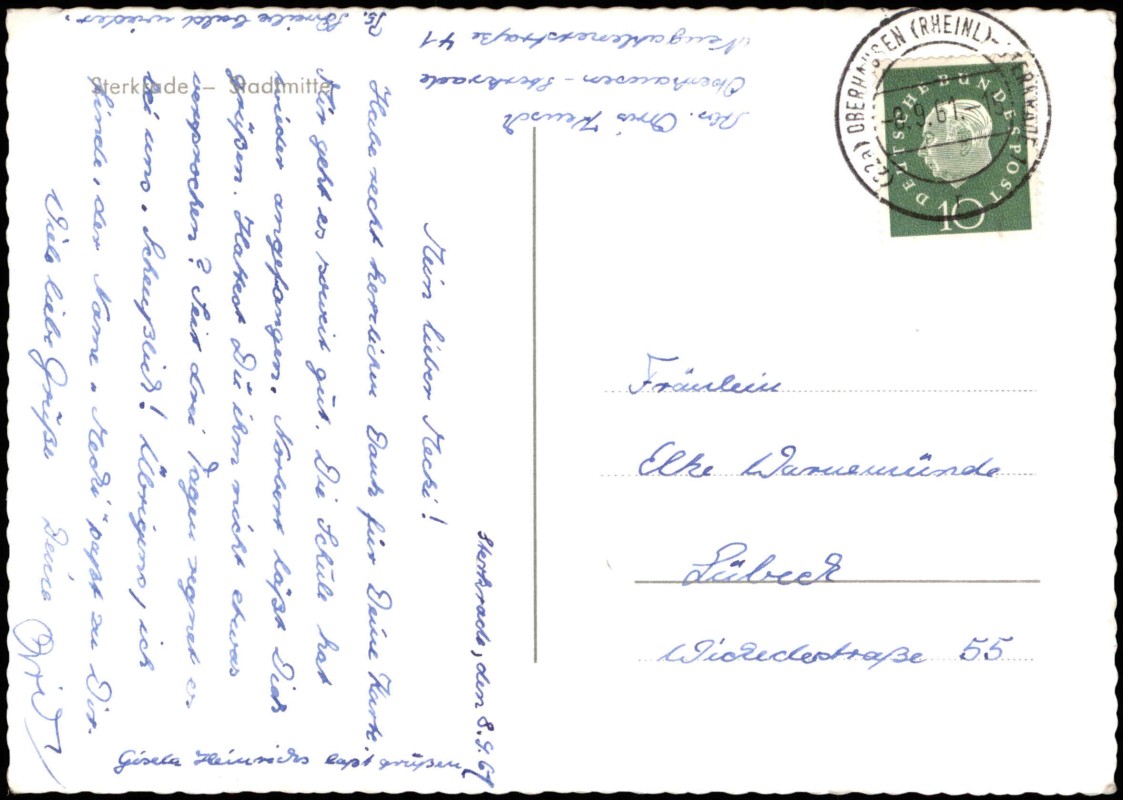 Sterkrade – Stadtmitte
Sterkrade, den 8.9.61
Mein lieber Mecki!
Habe recht herzlichen Dank für Deine Karte.
Mir geht es soweit gut. Die Schule hat
wieder angefangen. Norbert läßt Dich
grüßen. Hattest Du ihm nicht etwas
versprochen? Seit drei Tagen regnet es
bei uns. Scheußlich! Übrigens, ich
finde, der Name „Mecki" paßt zu Dir.
Viele liebe Grüße Deine
Ps. Schreibe bald wieder.
Gisela Heinrichs läßt grüßen
Abs.
Oberhausen-Sterkrade
41
(22a) OBERHAUSEN (RHEINL)-STERKRADE
-8.9.61.
r
DEUTSCHE BUNDESPOST
10
Fräulein
Elke Warnemünde
Lübeck
Wickedestraße 55